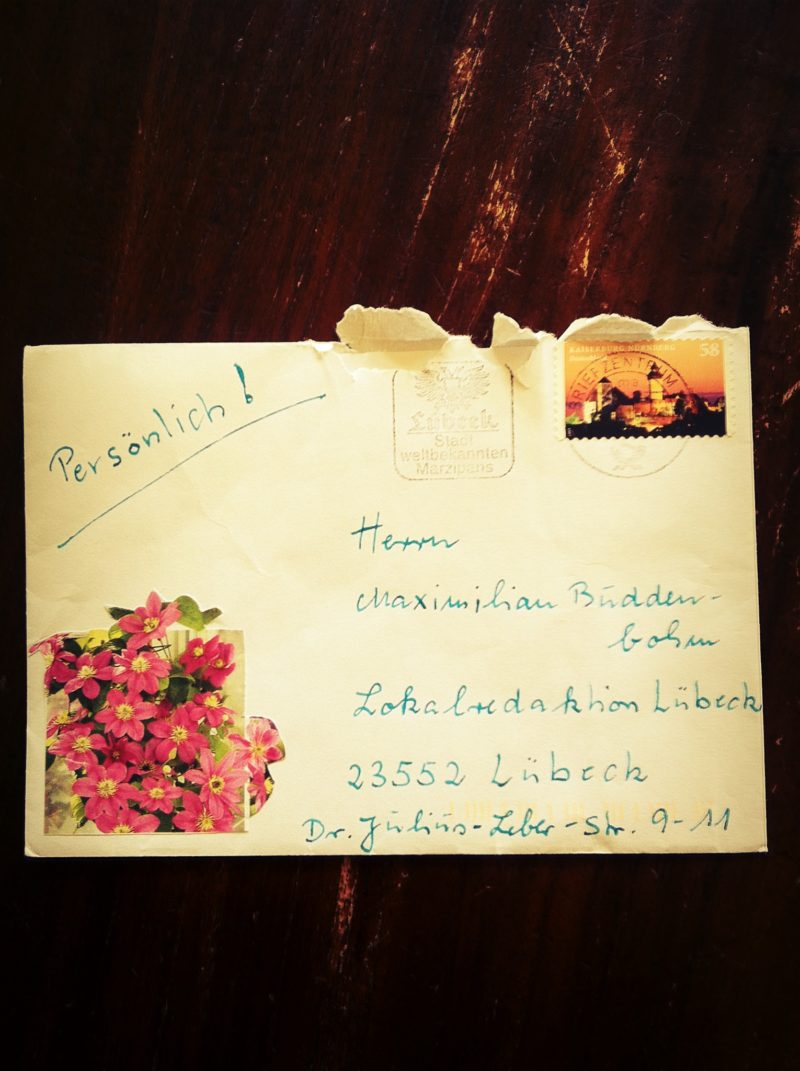 KAISERBURG NÜRNBERG
58
BRIEFZENTRUM
Persönlich!
Lübeck
Stadt
weltbekannten
Marzipans
Herrn
Maximilian Budden-
bohm
Lokalredaktion Lübeck
23552 Lübeck
Dr. Julius-Leber-Str. 9-11